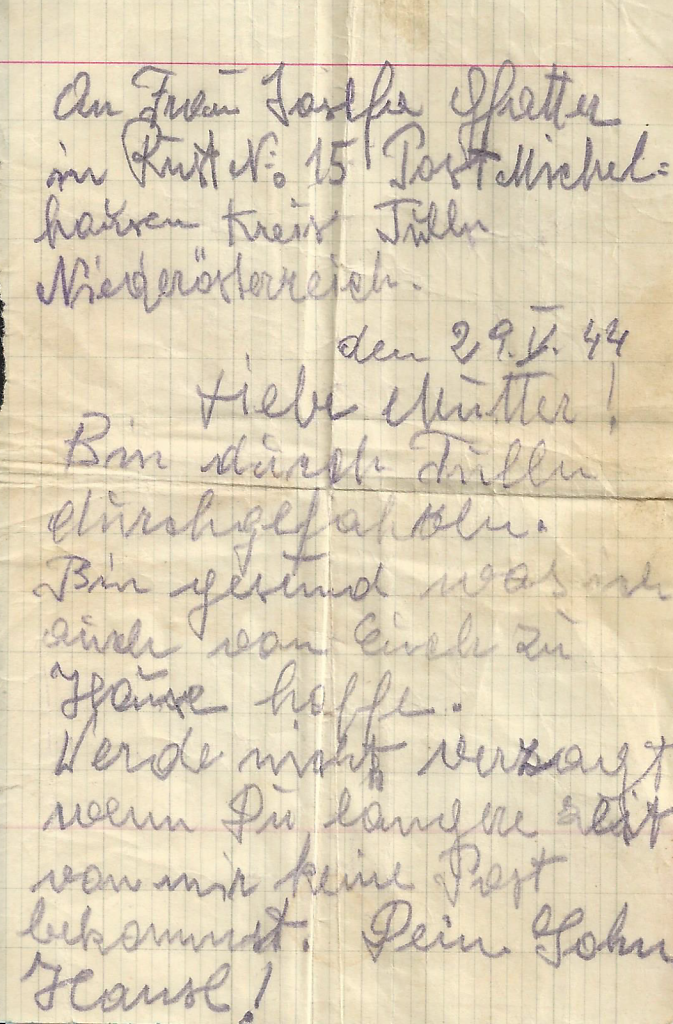 An Frau Josefa Gfatter
in Rust No. 15 Post Michel=
hausen Kreis Tulln
Niederösterreich.
den 29.V.44
Liebe Mutter!
Bin durch Tulln
durchgefahren.
Bin gesund was ich
auch von Euch zu
Hause hoffe.
Werde nicht verzagt
wenn Du längere Zeit
von mir keine Post
bekommst. Dein Sohn
Hansl!